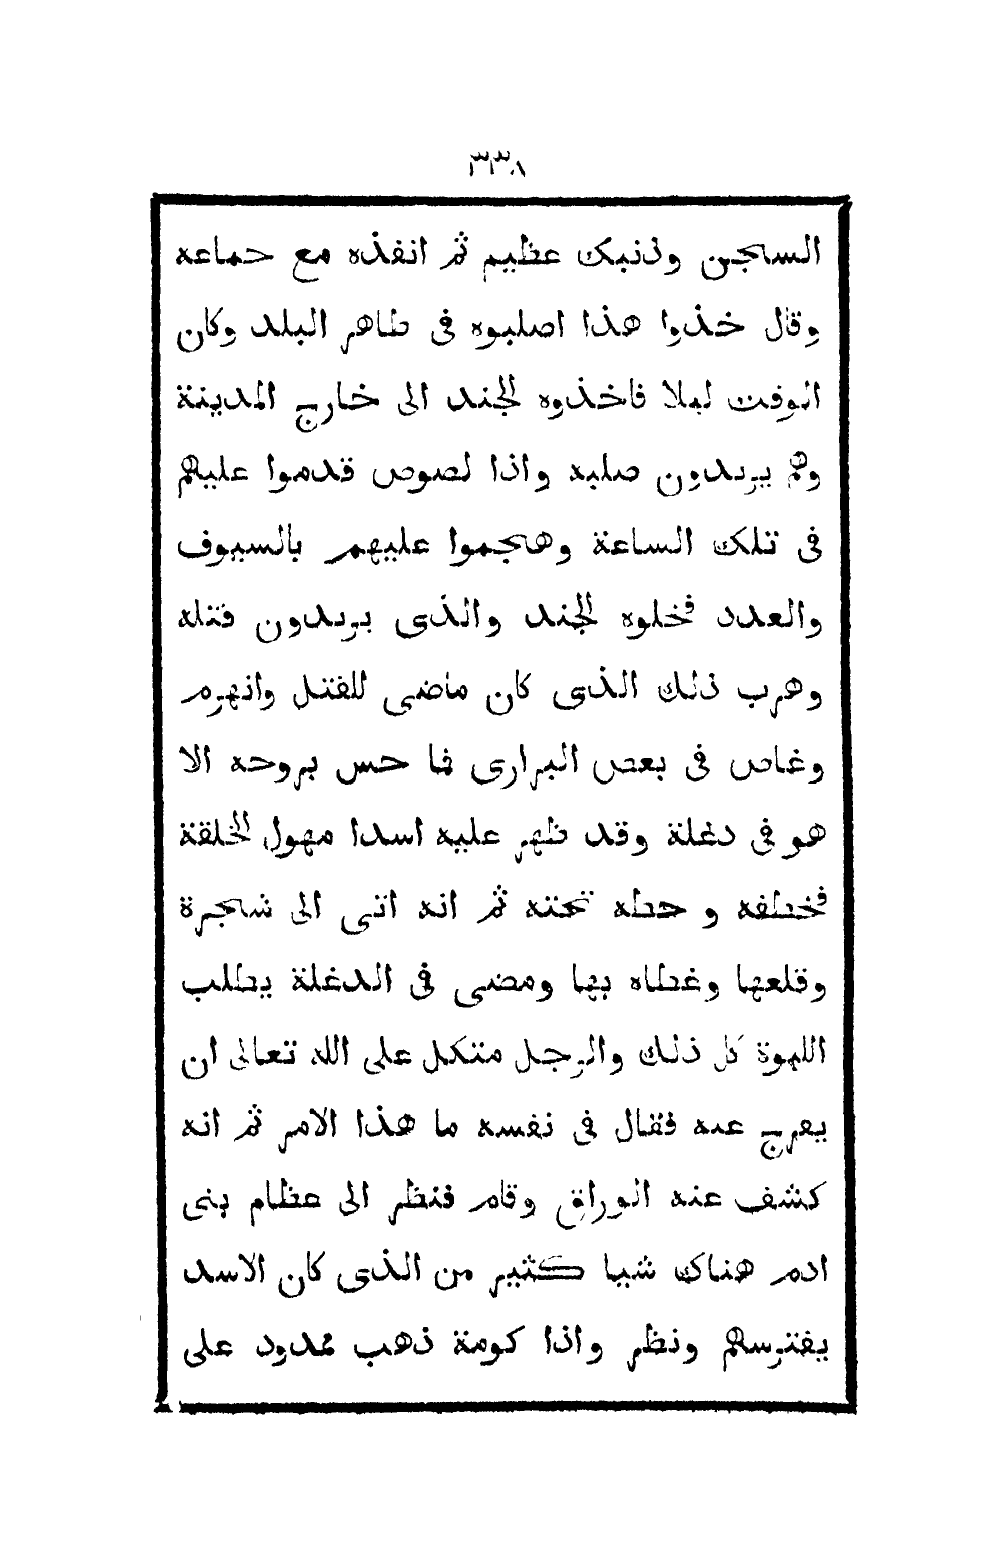 ٣٣٨
السجن وذنبك عظيم ثم انفذه مع جماعه
وقال خذوا هذا اصلبوه فى ظاهر البلد وكان
الوقت ليلا فاخذوه الجند الى خارج المدينة
وهم يريدون صلبه واذا لصوص قدموا عليهم
فى تلك الساعة وهجموا عليهم بالسيوف
والعدد فخلوه الجند والذى يريدون قتله
وهرب ذلك الذى كان ماضى للقتل وانهزم
وغاص فى بعض البرارى فما حس بروحه الا
هو فى دغلة وقد ظهر عليه اسدا مهول الخلقة
فخطفه و حطه تحته ثم انه اتى الى شجرة
وقلعها وغطاه بها ومضى فى الدغلة يطلب
اللبوة كل ذلك والرجل متكل على الله تعالى ان
يفرج عنه فقال فى نفسه ما هذا الامر ثم انه
كشف عنه الوراق وقام فنظر الى عظام بنى
ادم هناك شيا كثير من الذى كان الاسد
يفترسهم ونظر واذا كومة ذهب ممدود على